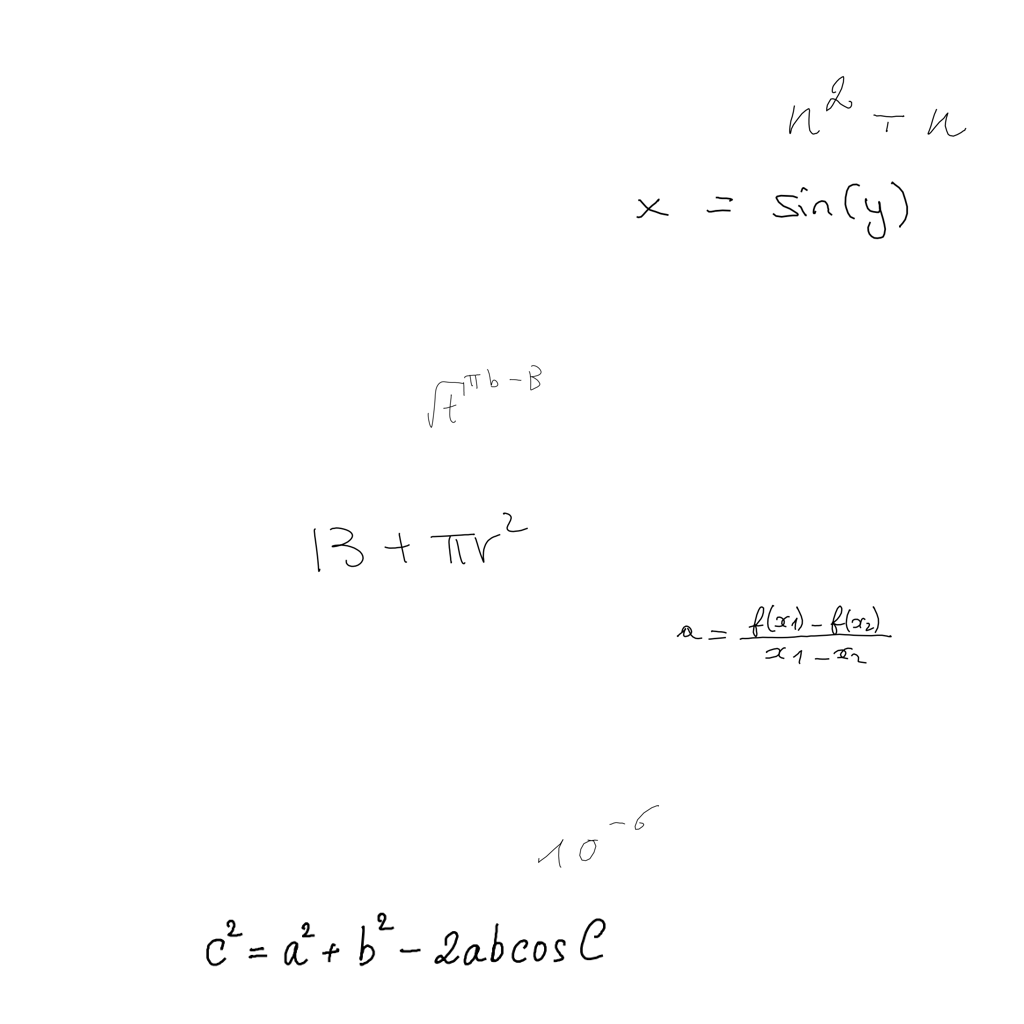 n² + n
x = sin(y)
√t^{πb-B}
13 + πr²
a = \frac{f(x_1) - f(x_2)}{x_1 - x_2}
10^{-6}
c² = a² + b² - 2ab cos C